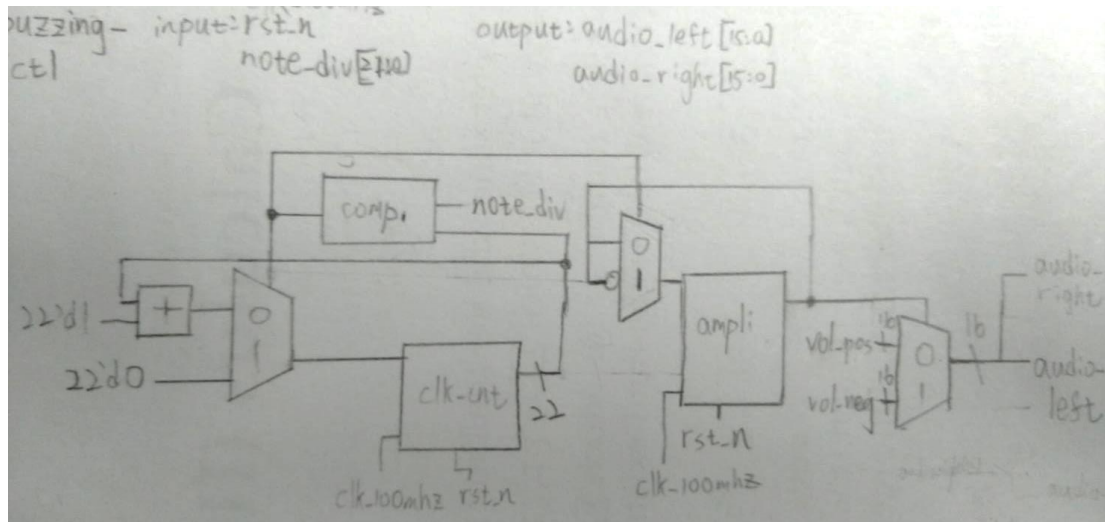 buzzing- input: rst_n output: audio_left[15:0]
ctl note_div[21:0] audio_right[15:0]
comp. note_div
0
1
+
0
1
22'd1
22'd0
clk_cnt
22
clk_100mhz rst_n
ampli
rst_n
clk_100mhz
vol_pos
16
vol_neg
16
0
1
16
audio_
right
audio_
left